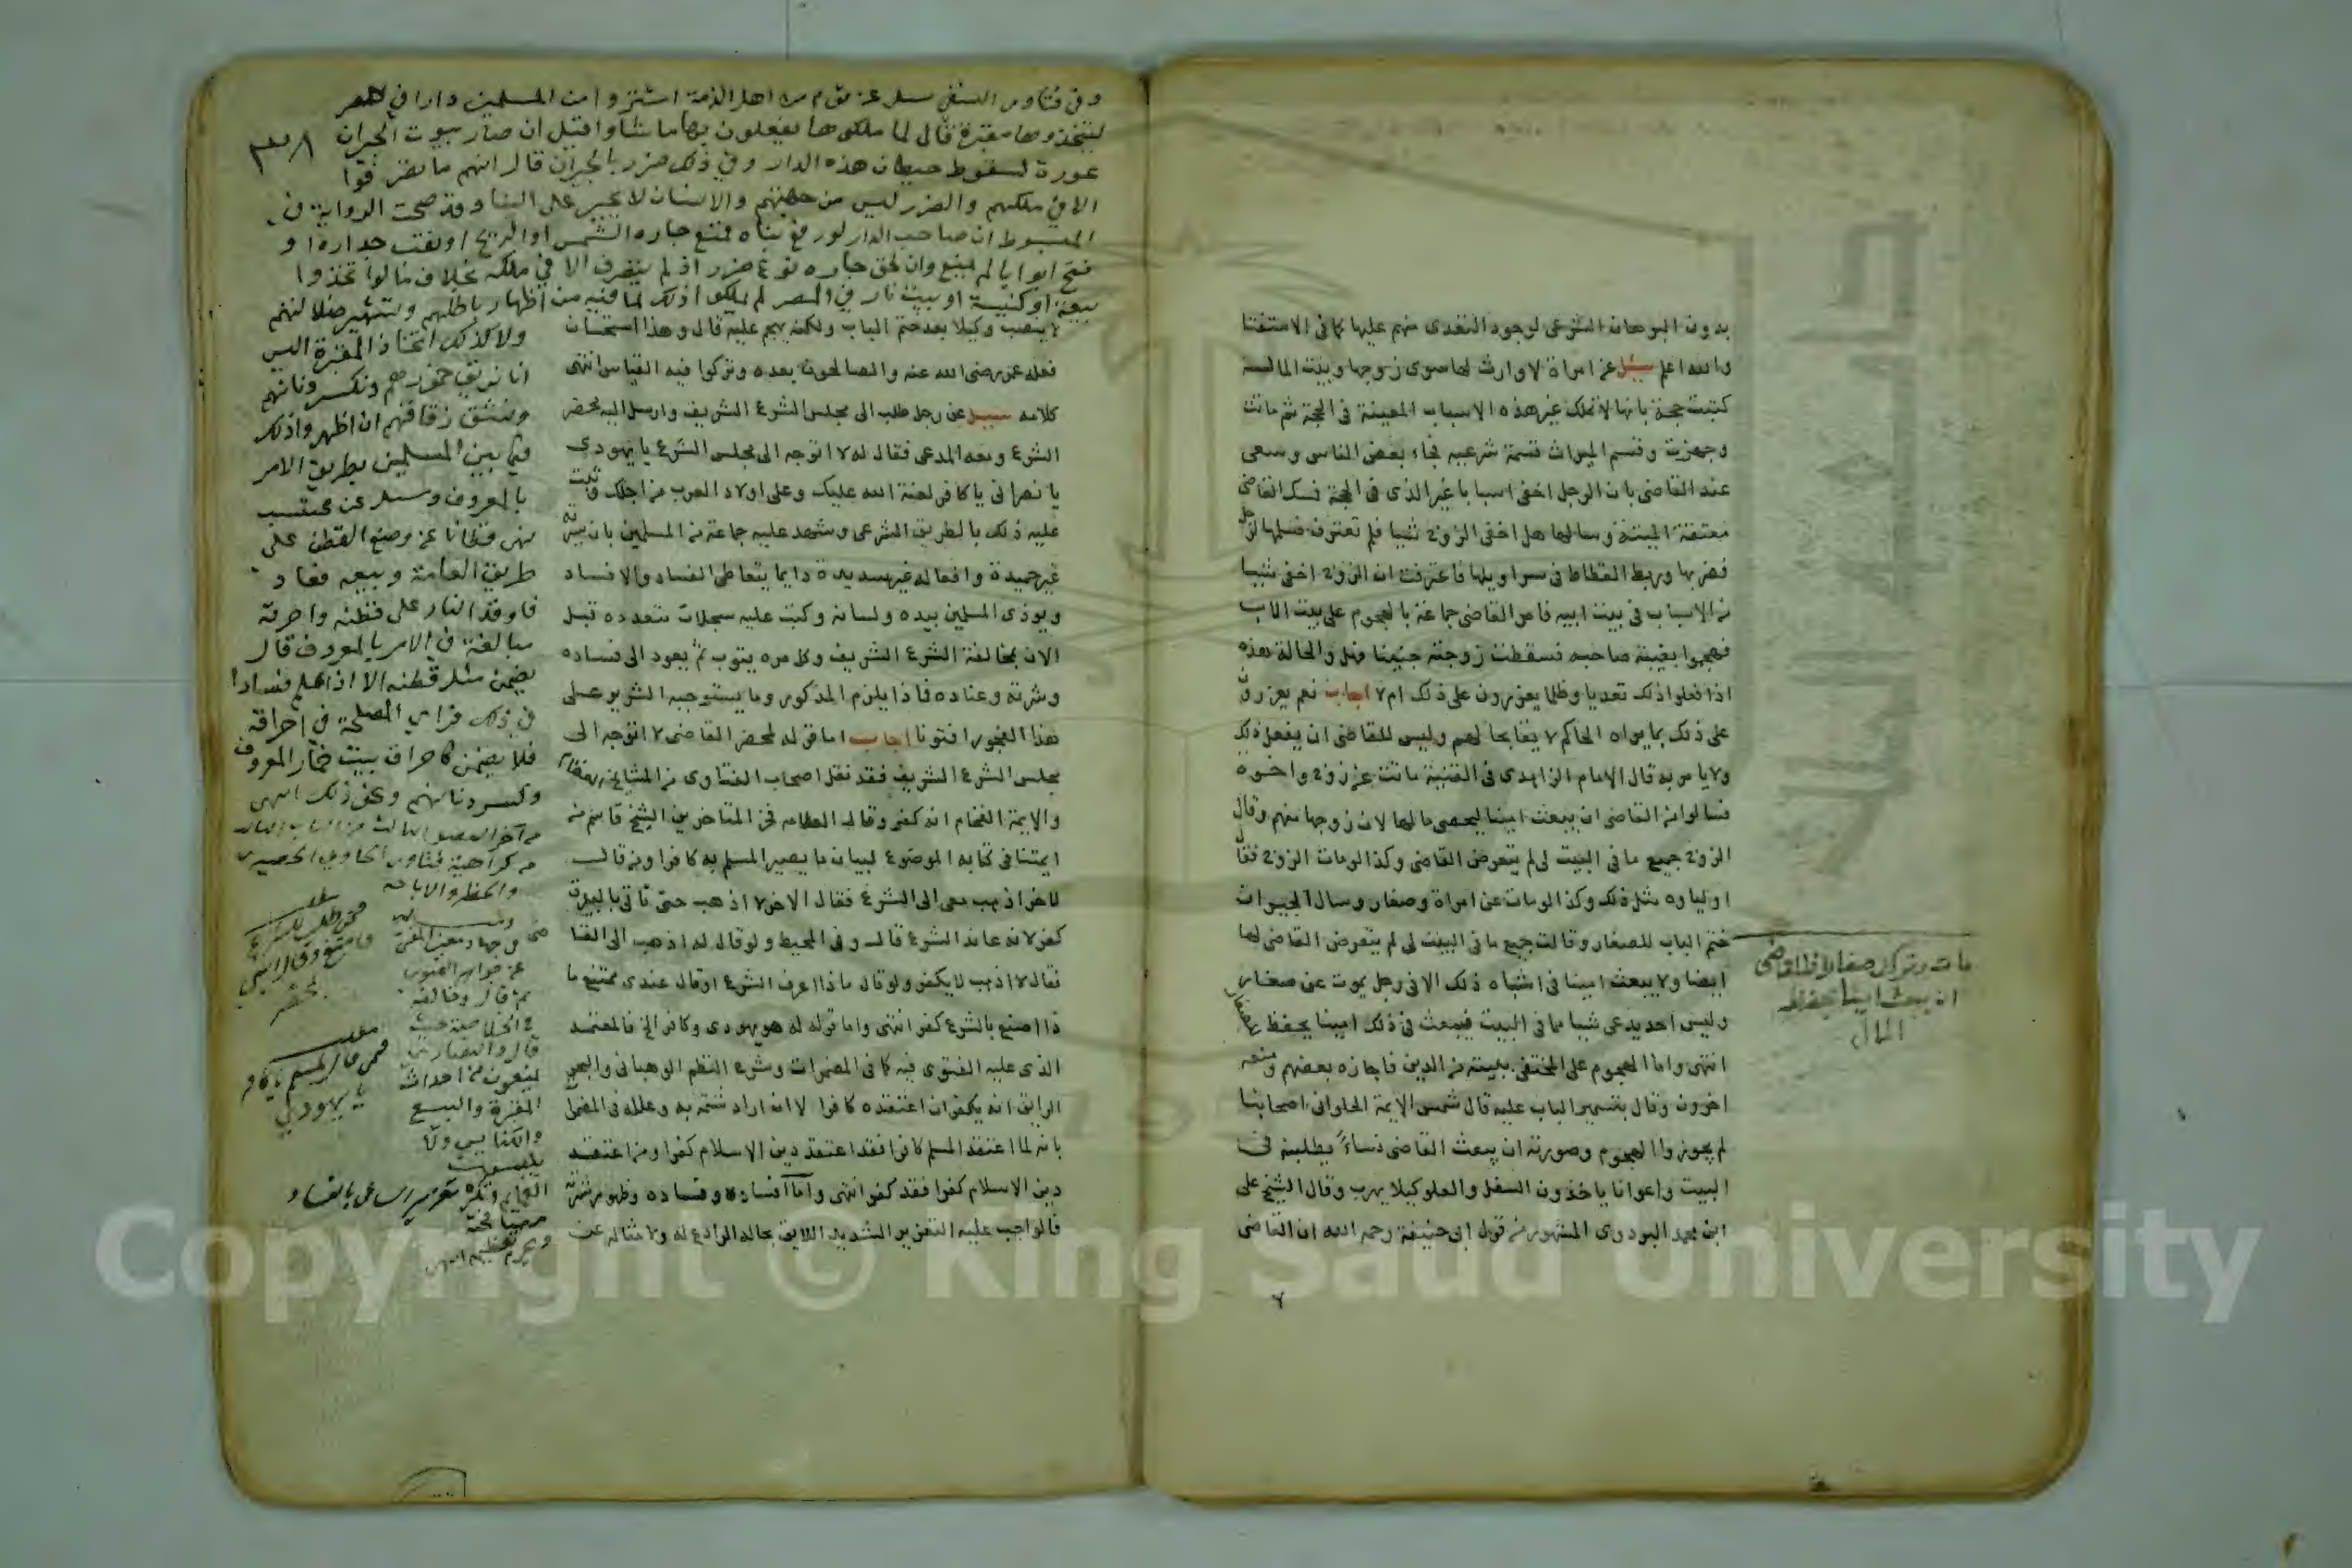 بدون البرهان الشرعي لوجود التعدي منهم عليها كما في الاستفتا
والله اعلم سئل عن امراة لا وارث لها سوى زوجها وبيت المال
كتبت حجة بانها لا تملك غير هذه الاسباب المعينة في الحجة ثم ماتت
وجهزت وقسم الميراث قسمة شرعيه فجاء بعض الناس وسعى
عند القاضي بان الرجل اخفى اسبابا غير الذي في الحجة فمسك القاضي
معتقة الميتة وسالها هل اخفى الزوج شيا فلم تعترف
فضربها وربط القطاط في سراويلها فاعترفت ان الزوج اخفى شيا
من الاسباب في بيت ابيه فامر القاضي جماعة بالهجوم على بيت الاب
فهجموا بغيبة صاحبه فسقطت زوجته جنينا فهل والحالة هذه
اذا فعلوا ذلك تعديا وظلما يعزرون على ذلك ام لا اجاب نعم يعزرون
على ذلك بما يراه الحاكم لايقا بحالهم وليس للقاضي ان يفعل ذلك
ولا يامر به قال الامام الزاهدي في القنية ماتت عن زوج واخوه
فسالوا من القاضي ان يبعث امينا ليحصي مالها لان زوجها متهم وقال
الزوج جميع ما في البيت لي لم يتعرض القاضي وكذا لو مات الزوج فقال
اولياوه مثل ذلك وكذا لو مات عن امراة وصغار وسال الجيران
ختم الباب للصغار وقالت جميع ما في البيت لي لم يتعرض القاضي لها
ايضا ولا يبعث امينا في اشباه ذلك الا في رجل يموت عن صغار
وليس احد يدعي شيا مما في البيت فيبعث في ذلك امينا يحفظ للصغار
انتهى واما الهجوم على المختفي ببيته من الدين فاجازه بعضهم ومنعه
اخرون وقال بتسمير الباب عليه قال شمس الايمة الحلواني اصحابنا
لم يجوزوا الهجوم وصورته ان يبعث القاضي نساء يطلبنه في
البيت واعوانا ياخذون السفل والعلو كيلا يهرب وقال الشيخ علي
ابن محمد البزدوي المشهور من قول ابي حنيفة رحمه الله ان القاضي
مات وترك صغارا فللقاضي
ان يبعث امينا يحفظ
المال
وفي فتاوى النسفي سئل عن قوم من اهل الذمة اشتروا من المسلمين دارا في المصر
ليتخذوها مقبرة قال لما ملكوها يفعلون بها ما شاوا قيل ان صار بيوت الجيران
عورة لسقوط حيطان هذه الدار وفي ذلك ضرر بالجيران قال انهم ما تصرفوا
الا في ملكهم والضرر ليس من جهتهم والانسان لا يجبر على البنا وقد صحت الرواية في
المبسوط ان صاحب الدار لو رفع بناه فمنع جاره الشمس او الريح او نقب جداره او
فتح ابوابا لم يمنع وان لحق جاره نوع ضرر اذ لم يتصرف الا في ملكه بخلاف ما لو اتخذوا
بيعة او كنيسة او بيت نار في المصر لم يملكوا ذلك لما فيه من اظهار باطلهم وتشهير ضلالتهم
ولا كذلك اتخاذ المقبرة اليس
انا نريق خمورهم ونكسر دنانهم
ونشق زقاقهم ان اظهروا ذلك
فيما بين المسلمين بطريق الامر
بالمعروف وسئل عن محتسب
نهى قطانا عن وضع القطن على
طريق العامة وبيعه فعاد
فاوقد النار على قطنه واحرقه
مبالغة في الامر بالمعروف قال
يضمن مثل قطنه الا اذا علم فسادا
في ذلك فراى المصلحة في احراقه
فلا يضمن كاحراق بيت خمار المعروف
وكسر دنانهم ونحو ذلك انتهى
من كراهية فتاوى الحاوي الحصيري
والحظر والاباحه
لا ينصب وكيلا بعد ختم الباب ولكنه يهجم عليه قال وهذا استحسان
فعله عمر رضي الله عنه والصالحون بعده وتركوا فيه القياس انتهى
كلامه سئل عن رجل طلب الى مجلس الشرع الشريف وارسل اليه محضر
الشرع ومعه المدعي فقال له لا اتوجه الى مجلس الشرع يا يهودي
يا نصراني يا كافر لعنة الله عليك وعلى اولاد العرب من اجلك وثبت
عليه ذلك بالطريق الشرعي وشهد عليه جماعة من المسلمين بان سيرته
غير حميدة وافعاله غير سديدة دايما يتعاطى الفساد والافساد
ويوذي المسلمين بيده ولسانه وكتب عليه سجلات متعدده قبل
الان بمخالفة الشرع الشريف وكل مره يتوب ثم يعود الى فساده
وشرته وعناده فماذا يلزم المذكور وما يستوجبه الشرير على
هذا الفجور افتونا اجاب اما قوله لمحضر القاضي لا اتوجه الى
مجلس الشرع الشريف فقد نقل اصحاب الفتاوى من المشايخ العظام
والايمة الفخام انه كفر وقال العلامه فخر المتاخرين الشيخ قاسم من
ايمتنا في كتابه الموضوع لبيان ما يصير المسلم به كافرا ومن قال
لاخر اذهب معي الى الشرع فقال الاخر لا اذهب حتى تاتي بالبيرق
كفر لانه عاند الشرع قال وفي المحيط ولو قال له اذهب الى القا
فقال لا اذهب لا يكفر ولو قال ماذا اعرف الشرع او قال عندي مقمع ما
ذا اصنع بالشرع كفر انتهى واما قوله له هو يهودي وكافر الخ فالمعتمد
الذي عليه الفتوى فيه كما في المضمرات وشرح النظم الوهباني والبحر
الرايق انه يكفر ان اعتقده كافرا لا ان اراد شتمه به وعلله في المضمرات
بانه لما اعتقد المسلم كافرا فقد اعتقد دين الاسلام كفرا ومن اعتقد
دين الاسلام كفرا فقد كفر انتهى واما افساده وفساده وظهور شرته
فالواجب عليه التعزير الشديد اللايق بحاله الرادع له ولامثاله عن
من طلب للشرع
فامتنع وقال
مطلب
فيمن قال لمسلم يا كافر
يا يهودي
قال والنصارى
يمنعون من احداث
المقبرة والبيع
والكنايس ولا
تعزير الساعي بالفساد
Copyright © King Saud University